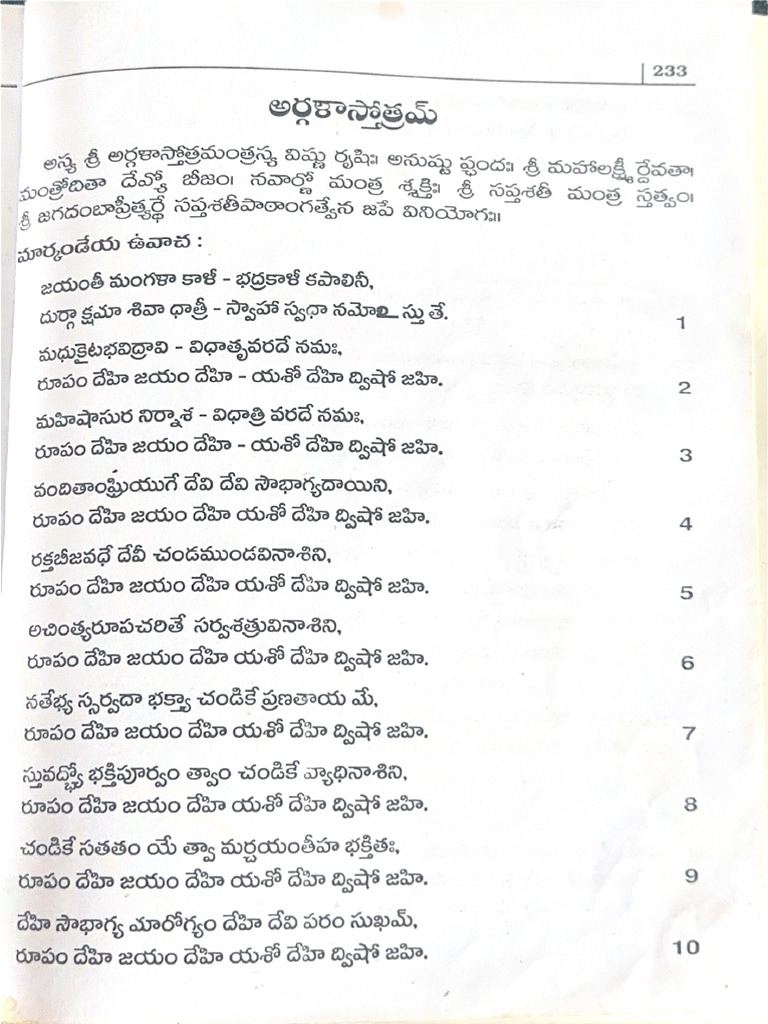 233
అర్గళాస్తోత్రమ్
అస్య శ్రీ అర్గళాస్తోత్రమంత్రస్య విష్ణు రృషిః అనుష్టు ప్ఛందః శ్రీ మహాలక్ష్మీ ర్దేవతా।
మంత్రోదితా దేవ్యో బీజం। నవార్ణో మంత్ర శ్శక్తిః శ్రీ సప్తశతీ మంత్ర స్తత్వం।
శ్రీ జగదంబాప్రీత్యర్థే సప్తశతీపాఠాంగత్వేన జపే వినియోగః॥
మార్కండేయ ఉవాచ :
జయంతీ మంగళా కాళీ - భద్రకాళీ కపాలినీ,
దుర్గా క్షమా శివా ధాత్రీ - స్వాహా స్వధా నమోఽ స్తు తే. 1
మధుకైటభవిద్రావి - విధాతృవరదే నమః,
రూపం దేహి జయం దేహి - యశో దేహి ద్విషో జహి. 2
మహిషాసుర నిర్నాశ - విధాత్రి వరదే నమః,
రూపం దేహి జయం దేహి - యశో దేహి ద్విషో జహి. 3
వందితాంఘ్రియుగే దేవి దేవి సౌభాగ్యదాయిని,
రూపం దేహి జయం దేహి యశో దేహి ద్విషో జహి. 4
రక్తబీజవధే దేవీ చండముండవినాశిని,
రూపం దేహి జయం దేహి యశో దేహి ద్విషో జహి. 5
అచింత్యరూపచరితే సర్వశత్రువినాశిని,
రూపం దేహి జయం దేహి యశో దేహి ద్విషో జహి. 6
నతేభ్య స్సర్వదా భక్త్యా చండికే ప్రణతాయ మే,
రూపం దేహి జయం దేహి యశో దేహి ద్విషో జహి. 7
స్తువద్భ్యో భక్తిపూర్వం త్వాం చండికే వ్యాధినాశిని,
రూపం దేహి జయం దేహి యశో దేహి ద్విషో జహి. 8
చండికే సతతం యే త్వా మర్చయంతీహ భక్తితః,
రూపం దేహి జయం దేహి యశో దేహి ద్విషో జహి. 9
దేహి సౌభాగ్య మారోగ్యం దేహి దేవి పరం సుఖమ్,
రూపం దేహి జయం దేహి యశో దేహి ద్విషో జహి. 10